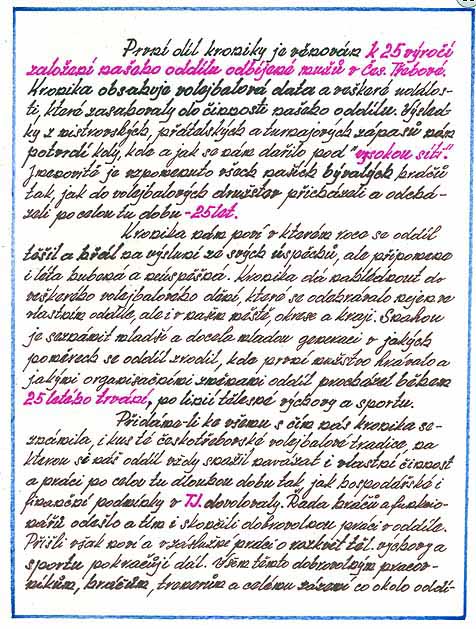 První díl kroniky je věnován k 25 výročí
založení našeho oddílu odbíjené mužů v Čes. Třebové.
Kronika obsahuje volejbalová data a veškeré událos-
ti, které zasahovaly do činnosti našeho oddílu. Výsled-
ky z mistrovských, přátelských a turnajových zápasů nám
potvrdí kdy, kde a jak se nám dařilo pod "vysokou sítí".
Jmenovitě je vzpomenuto všech našich bývalých hráčů
tak, jak do volejbalových družstev přicházeli a odchá-
zeli po celou tu dobu - 25 let.
Kronika nám poví v kterém roce se oddíl
těšil a hřál na výsluní ze svých úspěchů, ale připomene
i léta hubená a neúspěšná. Kronika dá nahlédnout do
veškerého volejbalového dění, které se odehrávalo nejen ve
vlastním oddíle, ale i v našem městě, okrese a kraji. Snahou
je seznámit mladší a docela mladou generaci v jakých
poměrech se oddíl zrodil, kde první mužstvo hrávalo a
jakými organisačními změnami oddíl procházel během
25 letého trvání, po linii tělesné výchovy a sportu.
Přidáme-li ke všemu s čím nás kronika se-
známila, i kus té českotřebovské volejbalové tradice, na
kterou se náš oddíl vždy snažil navázat i vlastní činnost
a práci po celou tu dlouhou dobu tak, jak hospodářské i
finanční podmínky v T.J. dovolovaly. Řada hráčů a funkcio-
nářů odešlo a tím i skončili dobrovolnou práci v oddíle.
Přišli však noví a v záslužné práci o rozkvět těl. výchovy a
sportu pokračují dál. Všem těmto dobrovolným pracov-
níkům, hráčům, trenérům a celému zázemí co okolo oddí-